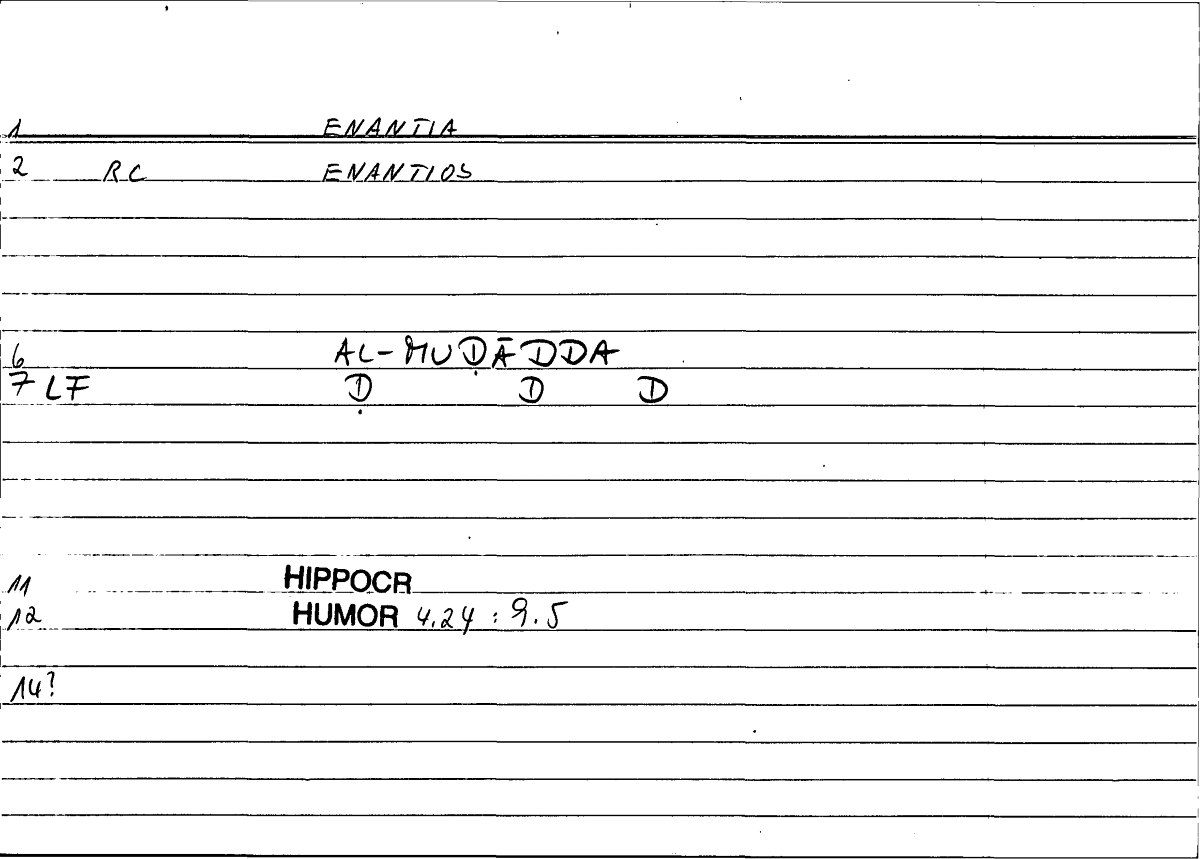 1 ENANTIA
2 RC ENANTIOS
6 AL-MUḌĀDDA
7 LF Ḍ D D
11 HIPPOCR
12 HUMOR 4.24 : 9.5
14?